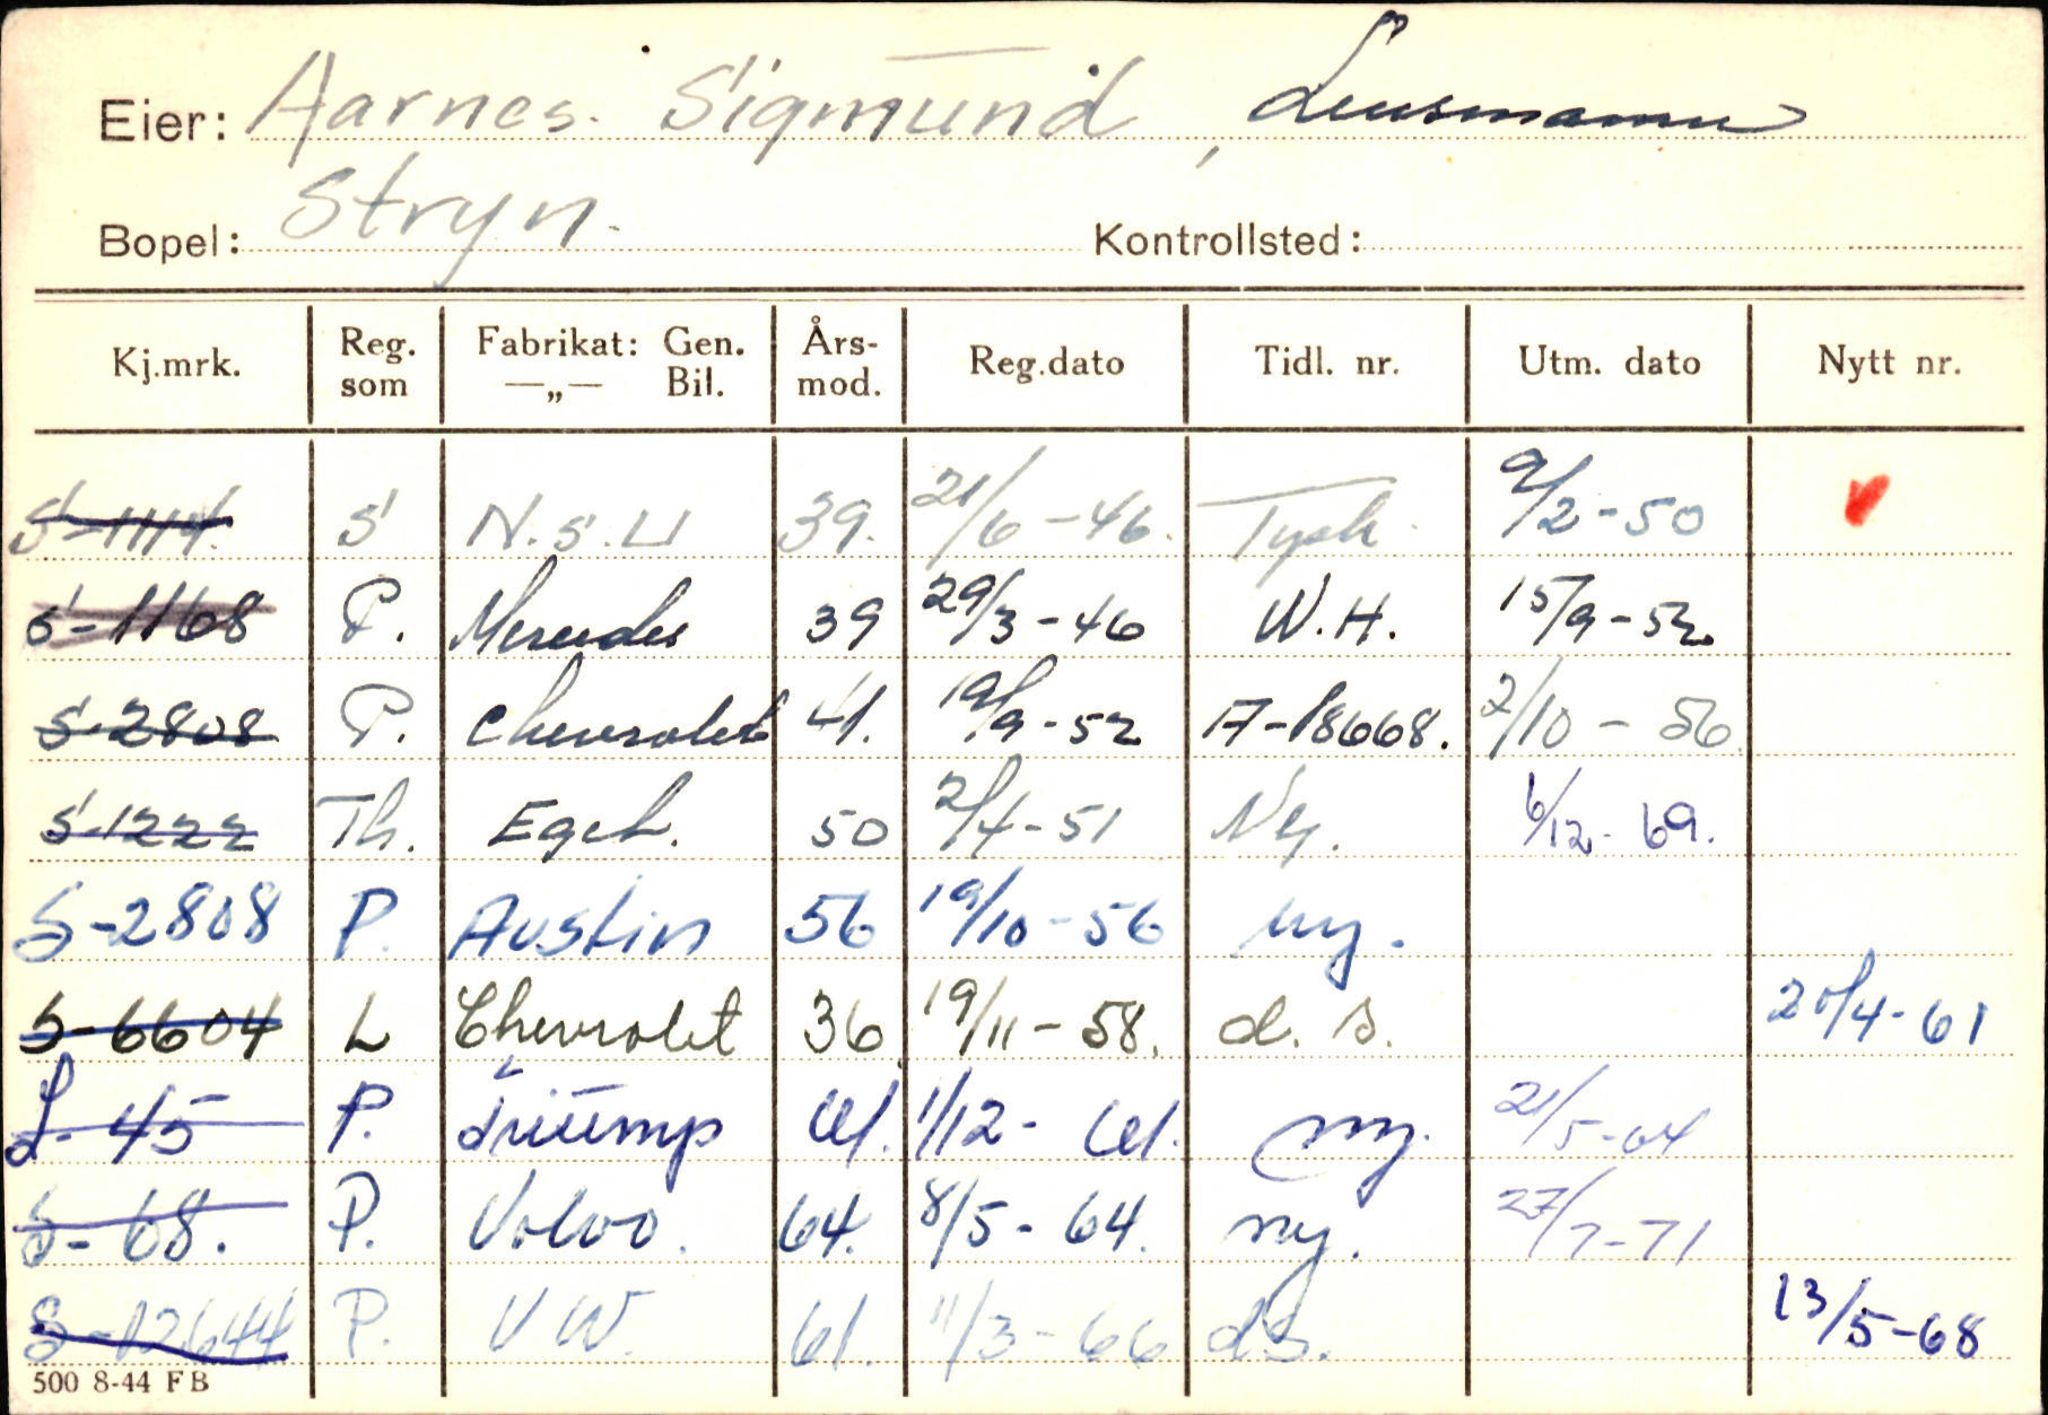 Eier: Aarnes. Sigmund, Lensmann
Bopel: Stryn. Kontrollsted:
Kj.mrk. Reg. som Fabrikat: Gen. —„— Bil. Års-mod. Reg.dato Tidl. nr. Utm. dato Nytt nr.
S-1114 S N.S.U 39. 21/6-46. Tysk. 9/2-50
S-1168 P. Mercedes 39 29/3-46 W.H. 15/9-52
S-2808 P. Chevrolet 41. 19/9-52 A-18668. 2/10-56
S-1222 Th. Egch. 50 2/4-51 Ny. 6/12-69.
S-2808 P. Austin 56 19/10-56 ny.
S-6604 L Chevrolet 36 19/11-58. d. s. 20/4-61
S-45 P. Triump 61. 1/12-61. ny. 21/5-64
S-68. P. Volvo. 64. 8/5-64. ny. 27/7-71
S-12644 P. VW. 61. 11/3-66 dS. 13/5-68
500 8-44 FB